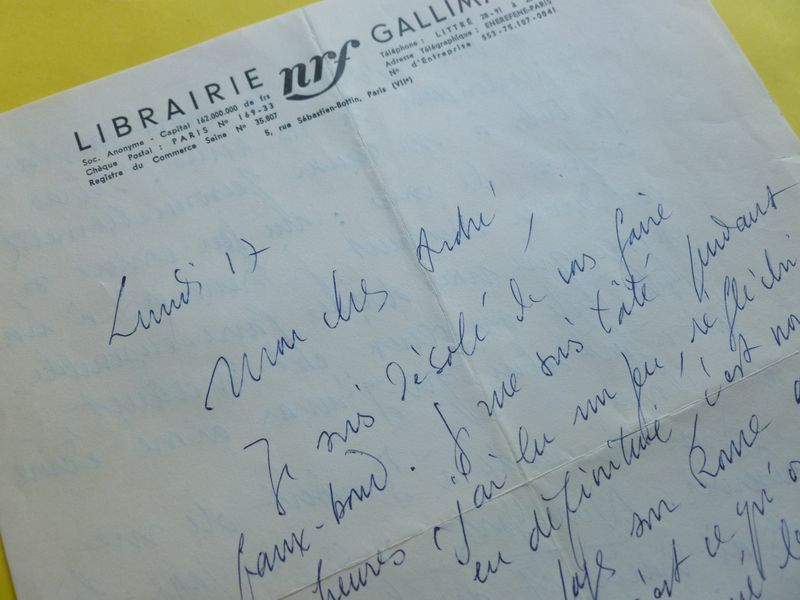 LIBRAIRIE nrf GALLIM
Soc. Anonyme - Capital 162.000.000 de frs
Chèque Postal : PARIS Nº 169-33
Registre du Commerce Seine Nº 35.807
Téléphone : LITTRÉ 28-91 à
Adresse Télégraphique : ENEREFENE-PARIS
Nº d'Entreprise 553-75-107-0041
5, rue Sébastien-Bottin, Paris (VIIᵉ)
Lundi 17
Mon cher André,
Je suis désolé de vous faire
faux-bond. Je me suis tâté pendant
heures, j'ai lu un peu, réfléchi
en définitive, c'est no
sur Rome
est ce qu'o